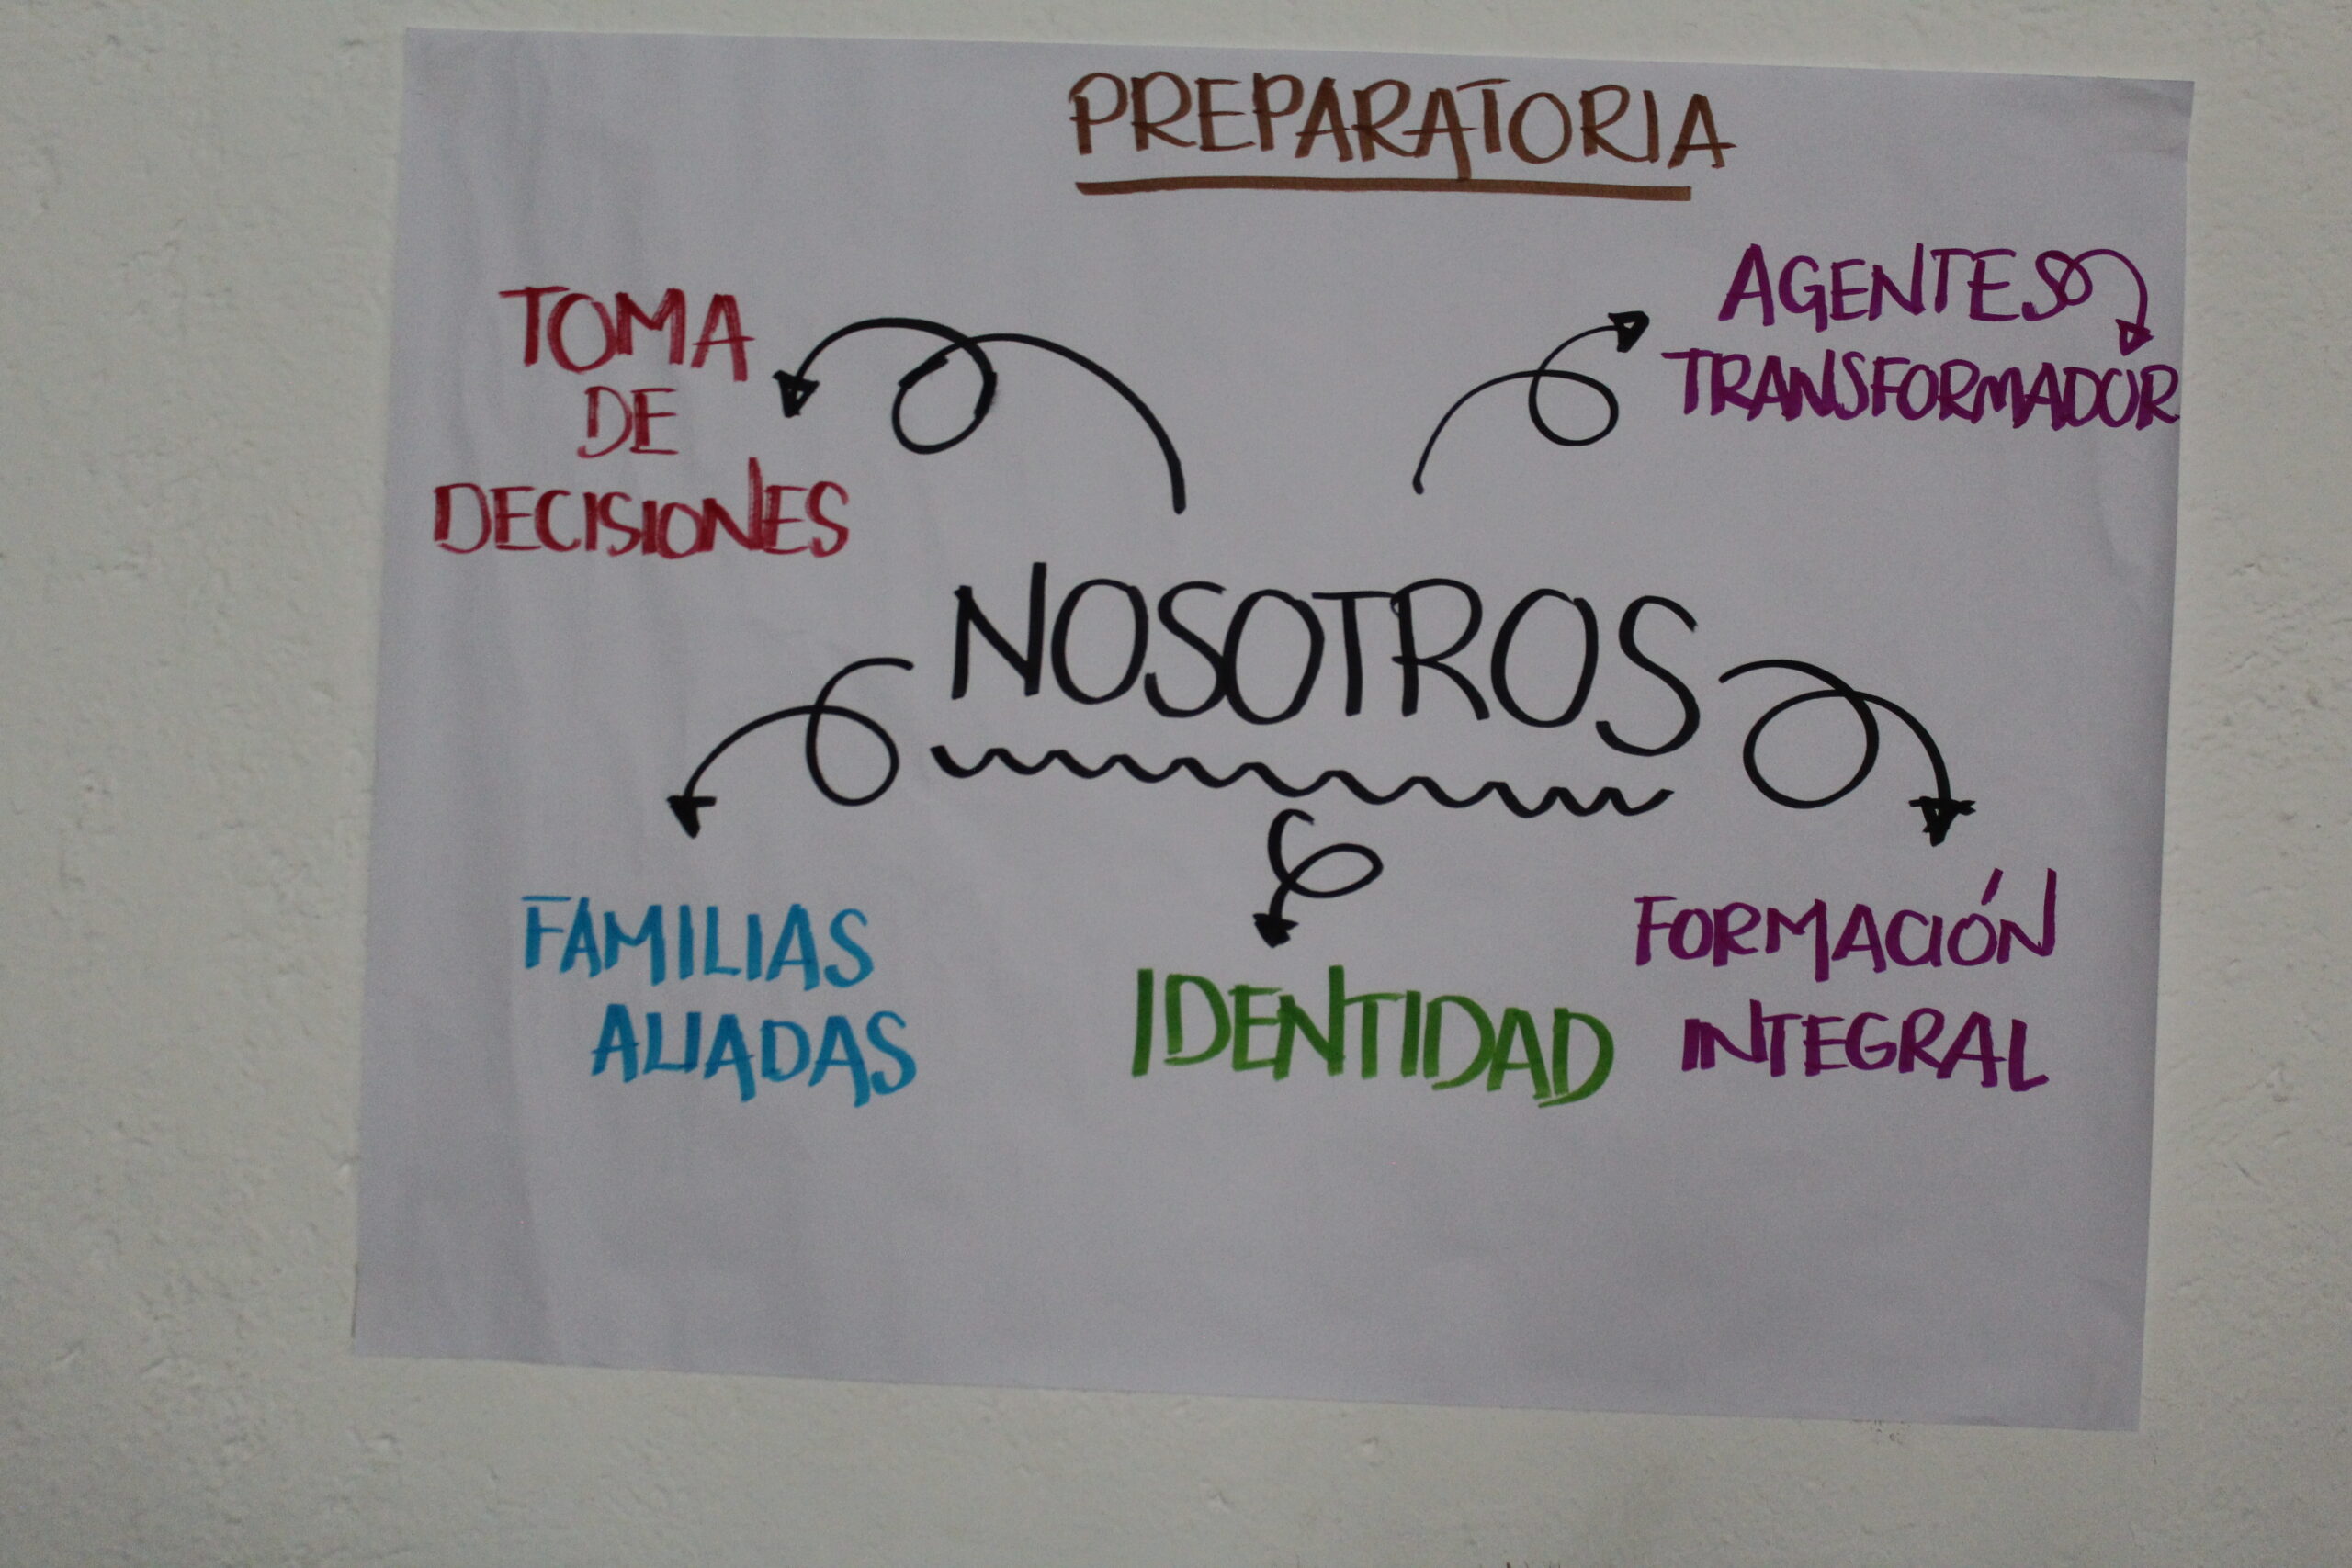 PREPARATORIA
TOMA
DE
DECISIONES
AGENTES
TRANSFORMADOR
NOSOTROS
FAMILIAS
ALIADAS
IDENTIDAD
FORMACIÓN
INTEGRAL